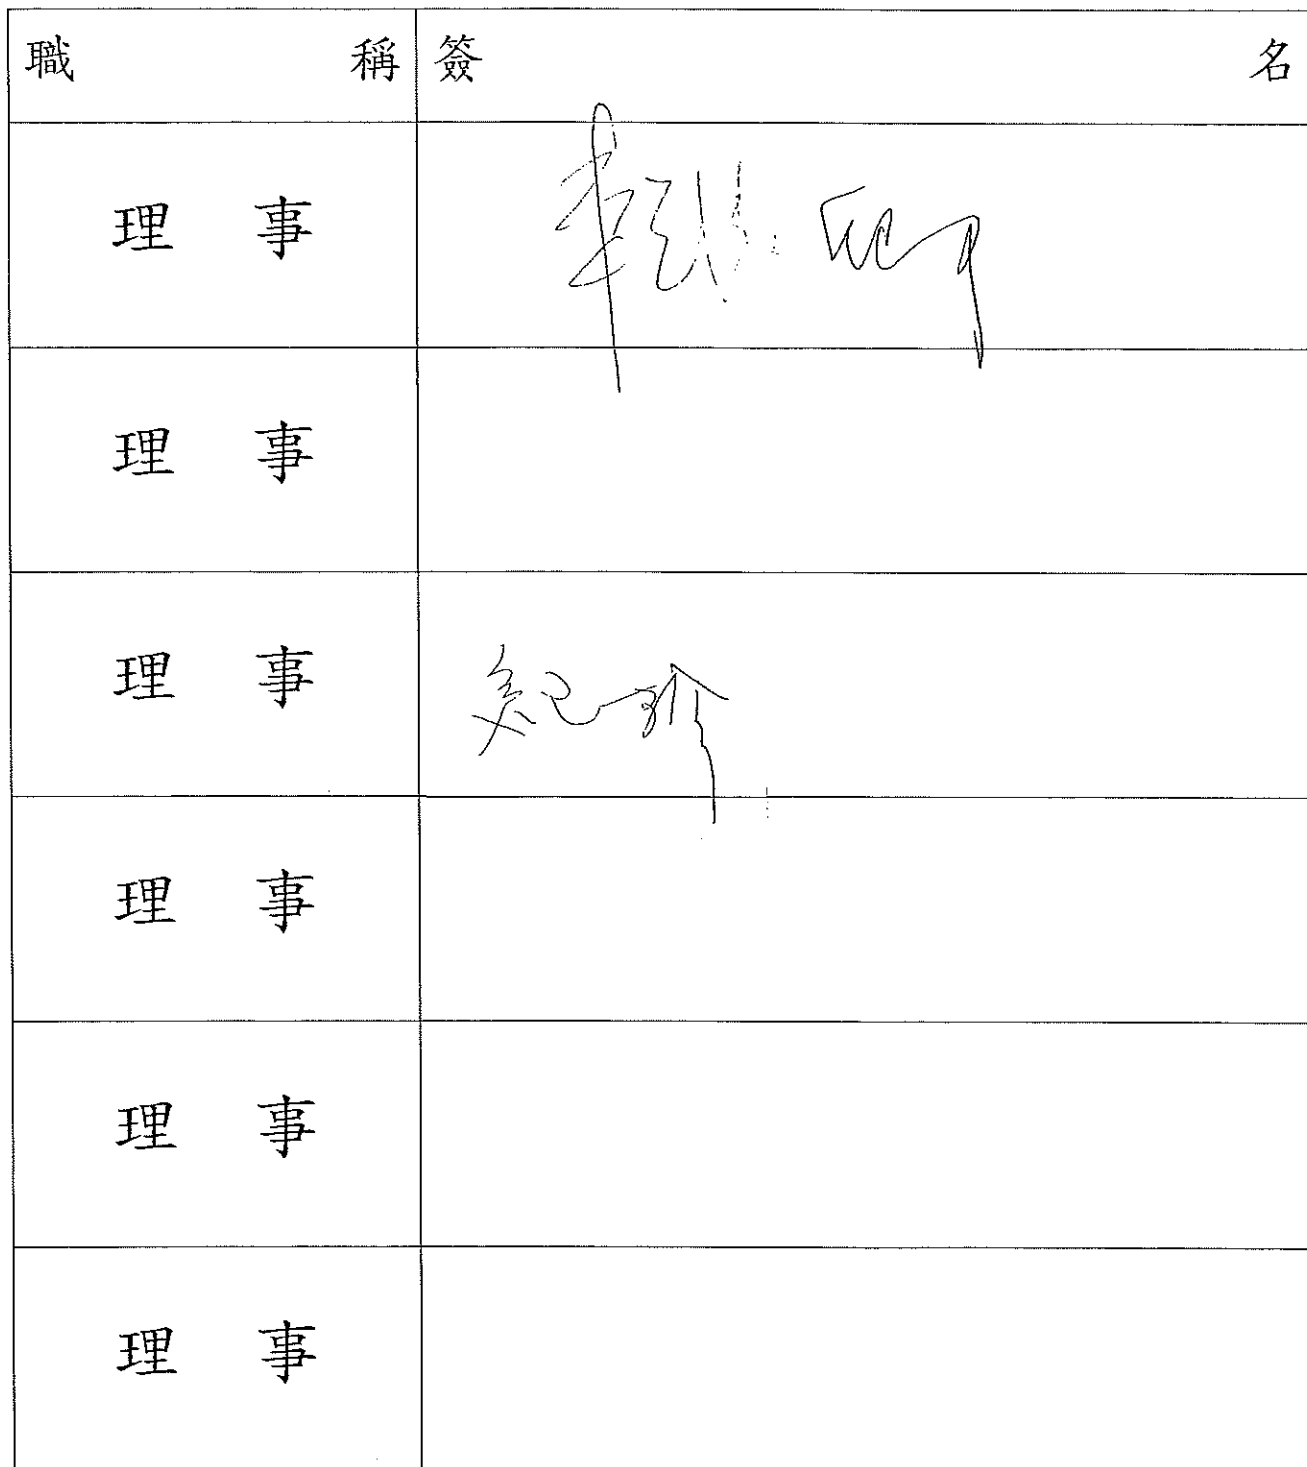 職稱 簽名
理事
理事
理事
理事
理事
理事